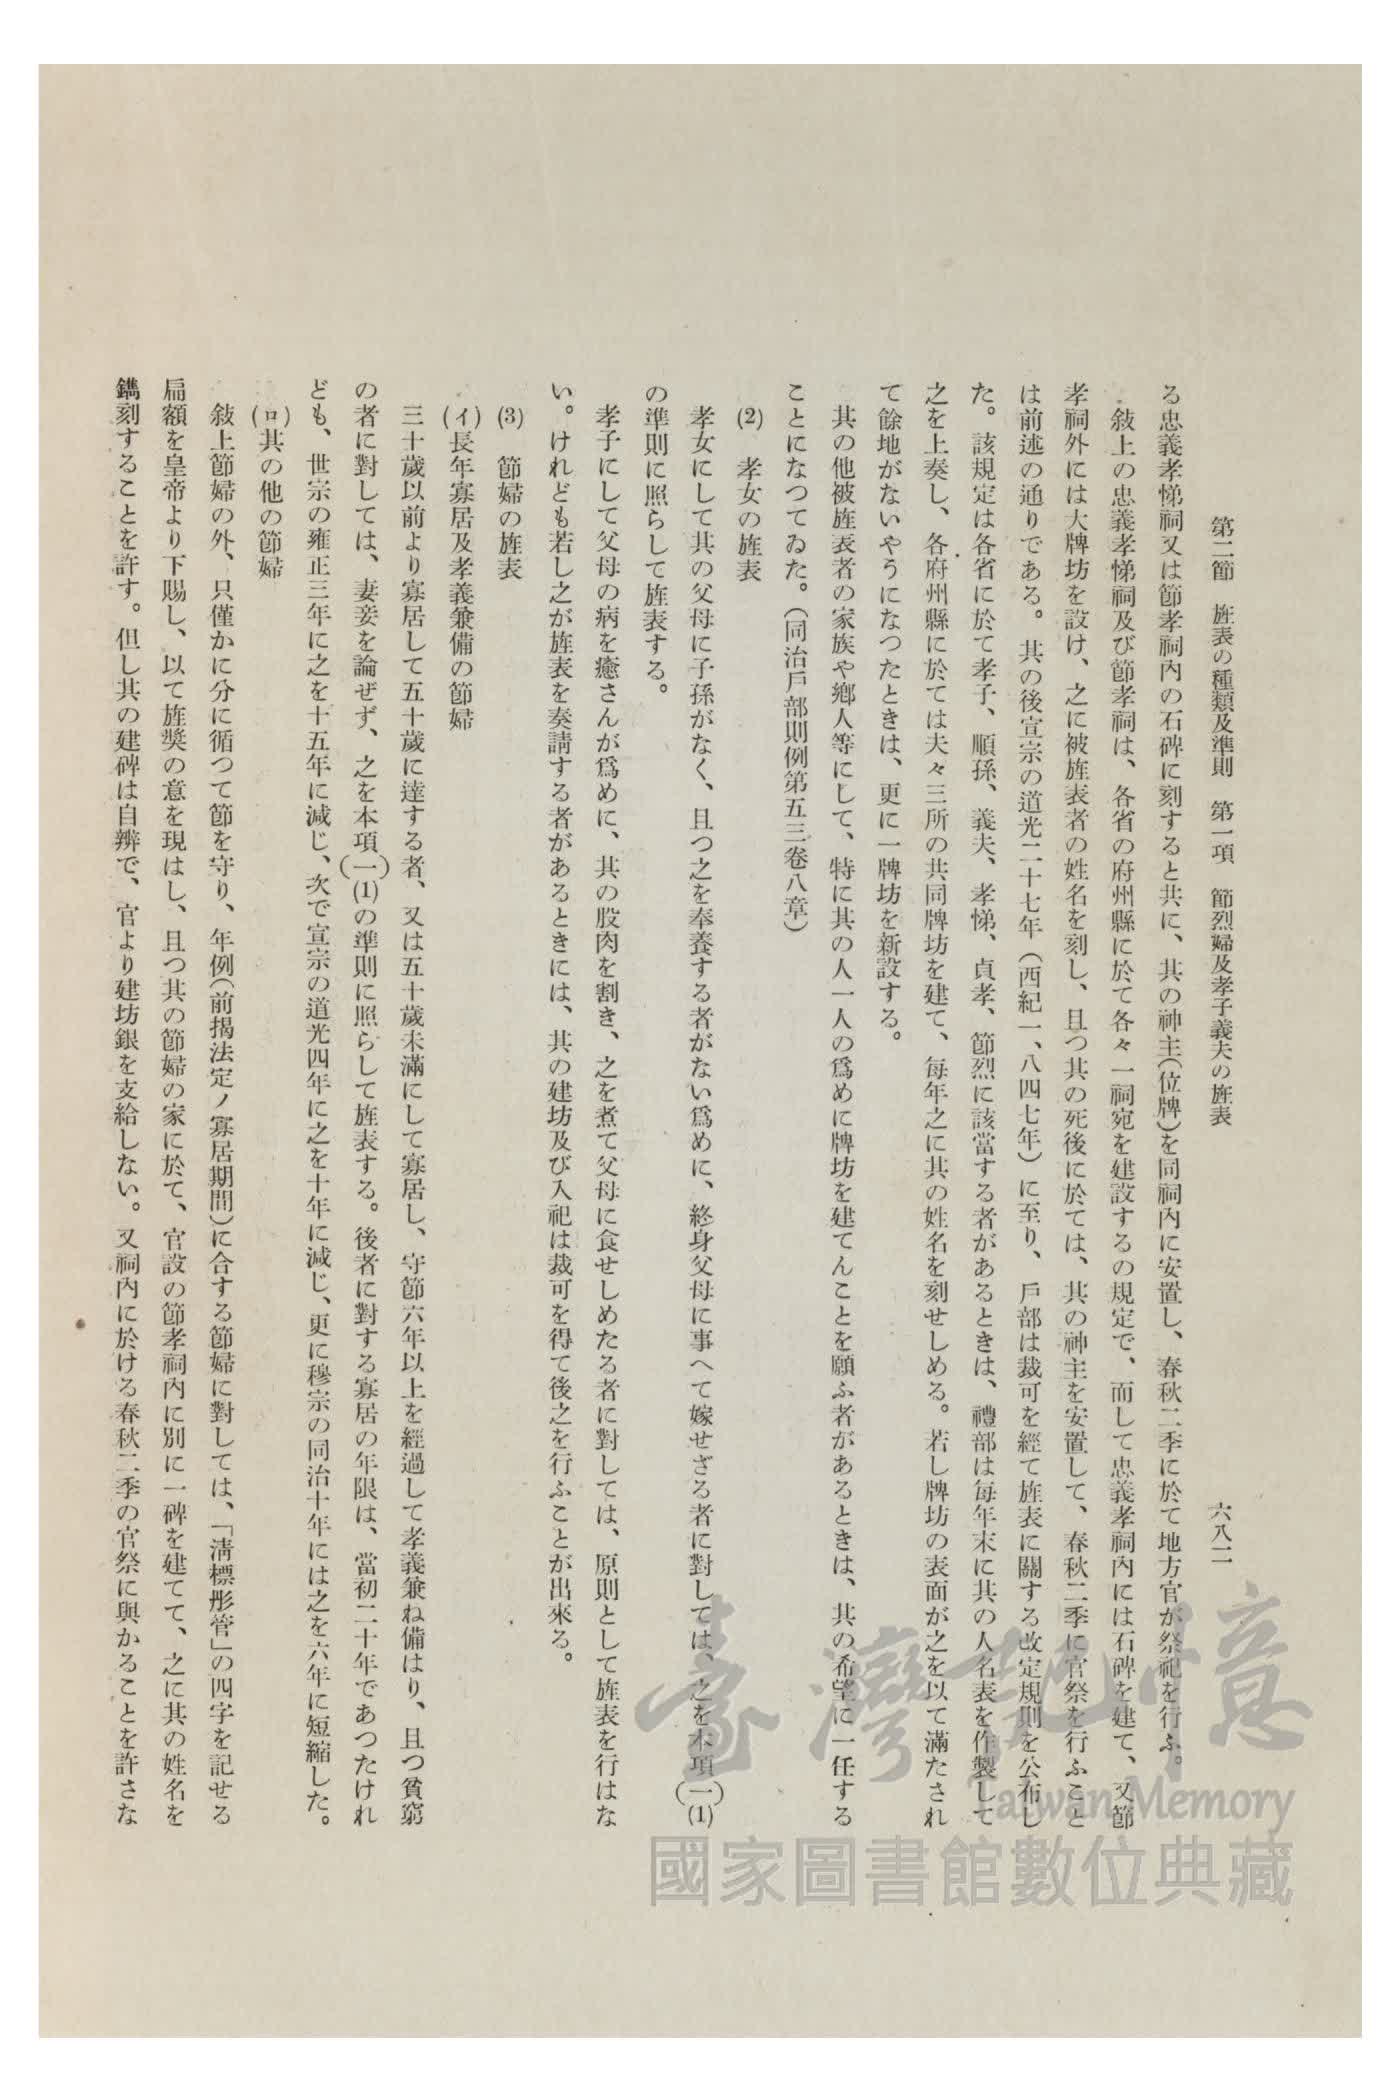 第二節　旌表の種類及準則　第一項　節烈婦及孝子義夫の旌表
六八二
る忠義孝悌祠又は節孝祠內の石碑に刻すると共に、其の神主（位牌）を同祠內に安置し、春秋二季に於て地方官が祭祀を行ふ。
敍上の忠義孝悌祠及び節孝祠は、各省の府州縣に於て各々一祠宛を建設するの規定で、而して忠義孝祠內には石碑を建て、又節
孝祠外には大牌坊を設け、之に被旌表者の姓名を刻し、且つ其の死後に於ては、其の神主を安置して、春秋二季に官祭を行ふこと
は前述の通りである。其の後宣宗の道光二十七年（西紀一、八四七年）に至り、戶部は裁可を經て旌表に關する改定規則を公布し
た。該規定は各省に於て孝子、順孫、義夫、孝悌、貞孝、節烈に該當する者があるときは、禮部は每年末に其の人名表を作製して
之を上奏し、各府州縣に於ては夫々三所の共同牌坊を建て、每年之に其の姓名を刻せしめる。若し牌坊の表面が之を以て滿たされ
て餘地がないやうになつたときは、更に一牌坊を新設する。
其の他被旌表者の家族や鄕人等にして、特に其の人一人の爲めに牌坊を建てんことを願ふ者があるときは、其の希望に一任する
ことになつてゐた。（同治戶部則例第五三卷八章）
(2)　孝女の旌表
孝女にして其の父母に子孫がなく、且つ之を奉養する者がない爲めに、終身父母に事へて嫁せざる者に對しては、之を本項(一)(1)
の準則に照らして旌表する。
孝子にして父母の病を癒さんが爲めに、其の股肉を割き、之を煮て父母に食せしめたる者に對しては、原則として旌表を行はな
い。けれども若し之が旌表を奏請する者があるときには、其の建坊及び入祀は裁可を得て後之を行ふことが出來る。
(3)　節婦の旌表
(イ)長年寡居及孝義兼備の節婦
三十歲以前より寡居して五十歲に達する者、又は五十歲未滿にして寡居し、守節六年以上を經過して孝義兼ね備はり、且つ貧窮
の者に對しては、妻妾を論ぜず、之を本項(一)(1)の準則に照らして旌表する。後者に對する寡居の年限は、當初二十年であつたけれ
ども、世宗の雍正三年に之を十五年に減じ、次で宣宗の道光四年に之を十年に減じ、更に穆宗の同治十年には之を六年に短縮した。
(ロ)其の他の節婦
敍上節婦の外、只僅かに分に循つて節を守り、年例（前揭法定ノ寡居期間）に合する節婦に對しては、「淸標彤管」の四字を記せる
扁額を皇帝より下賜し、以て旌獎の意を現はし、且つ其の節婦の家に於て、官設の節孝祠內に別に一碑を建てて、之に其の姓名を
鐫刻することを許す。但し其の建碑は自辨で、官より建坊銀を支給しない。又祠內に於ける春秋二季の官祭に與かることを許さな
臺灣記憶
Taiwan Memory
國家圖書館數位典藏